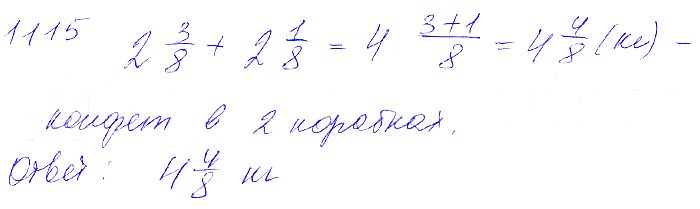 1115 2 3/8 + 2 1/8 = 4 (3+1)/8 = 4 4/8 (кг) –
конфет в 2 коробках.
Ответ: 4 4/8 кг